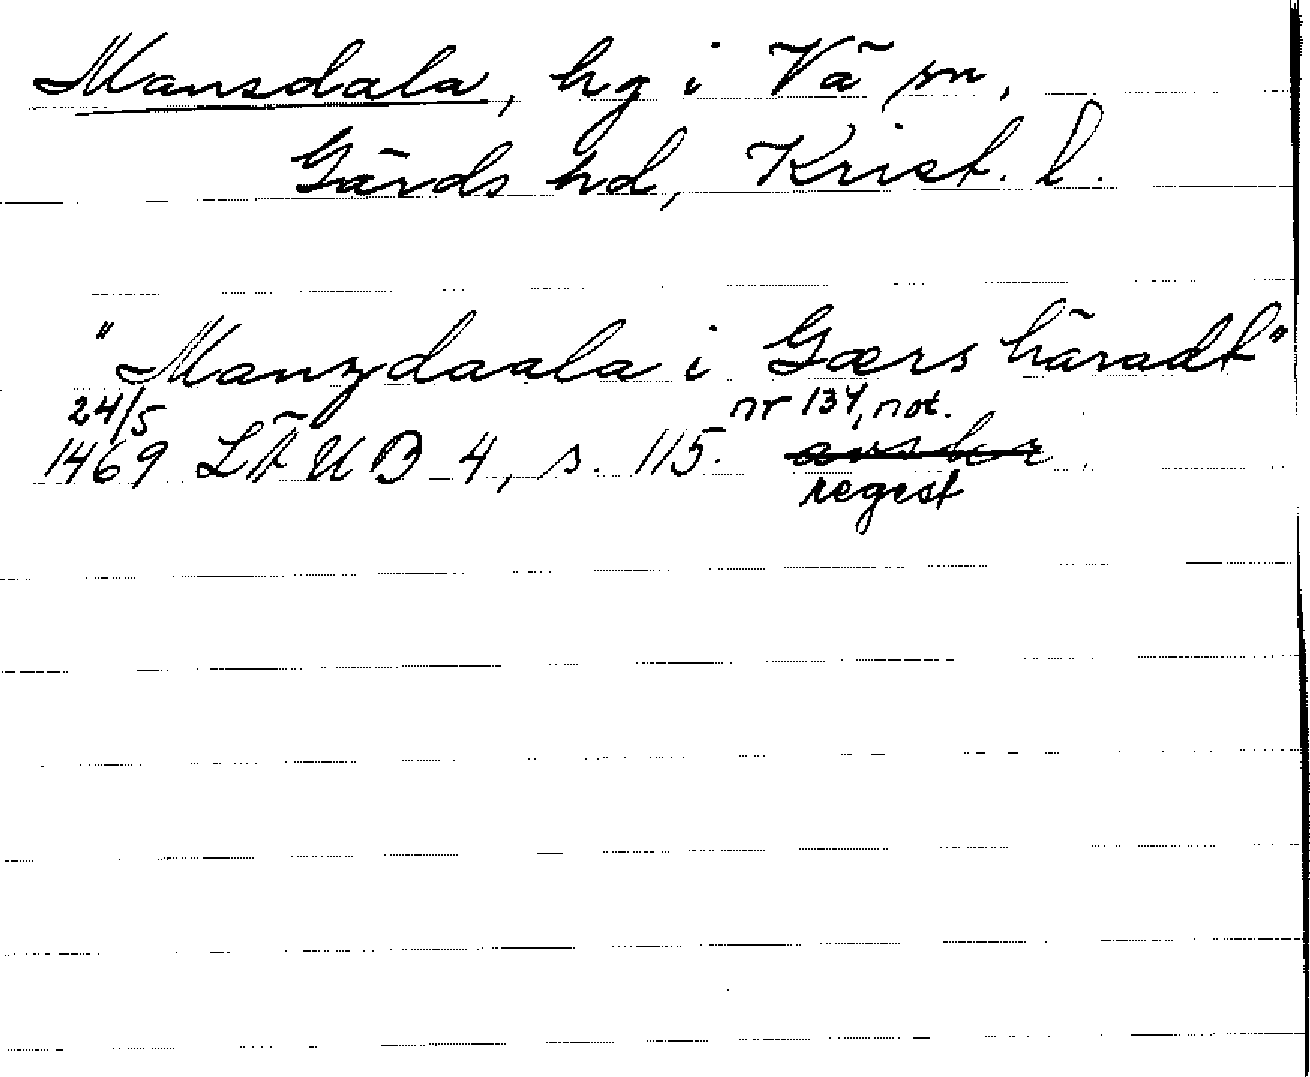 Mansdala, hg i Vä sn,
Gärds hd, Krist. l.
"Manzdaala i Gærs häradt"
24/5 nr 134, not.
1469 LÄUB 4, s. 115.
regest